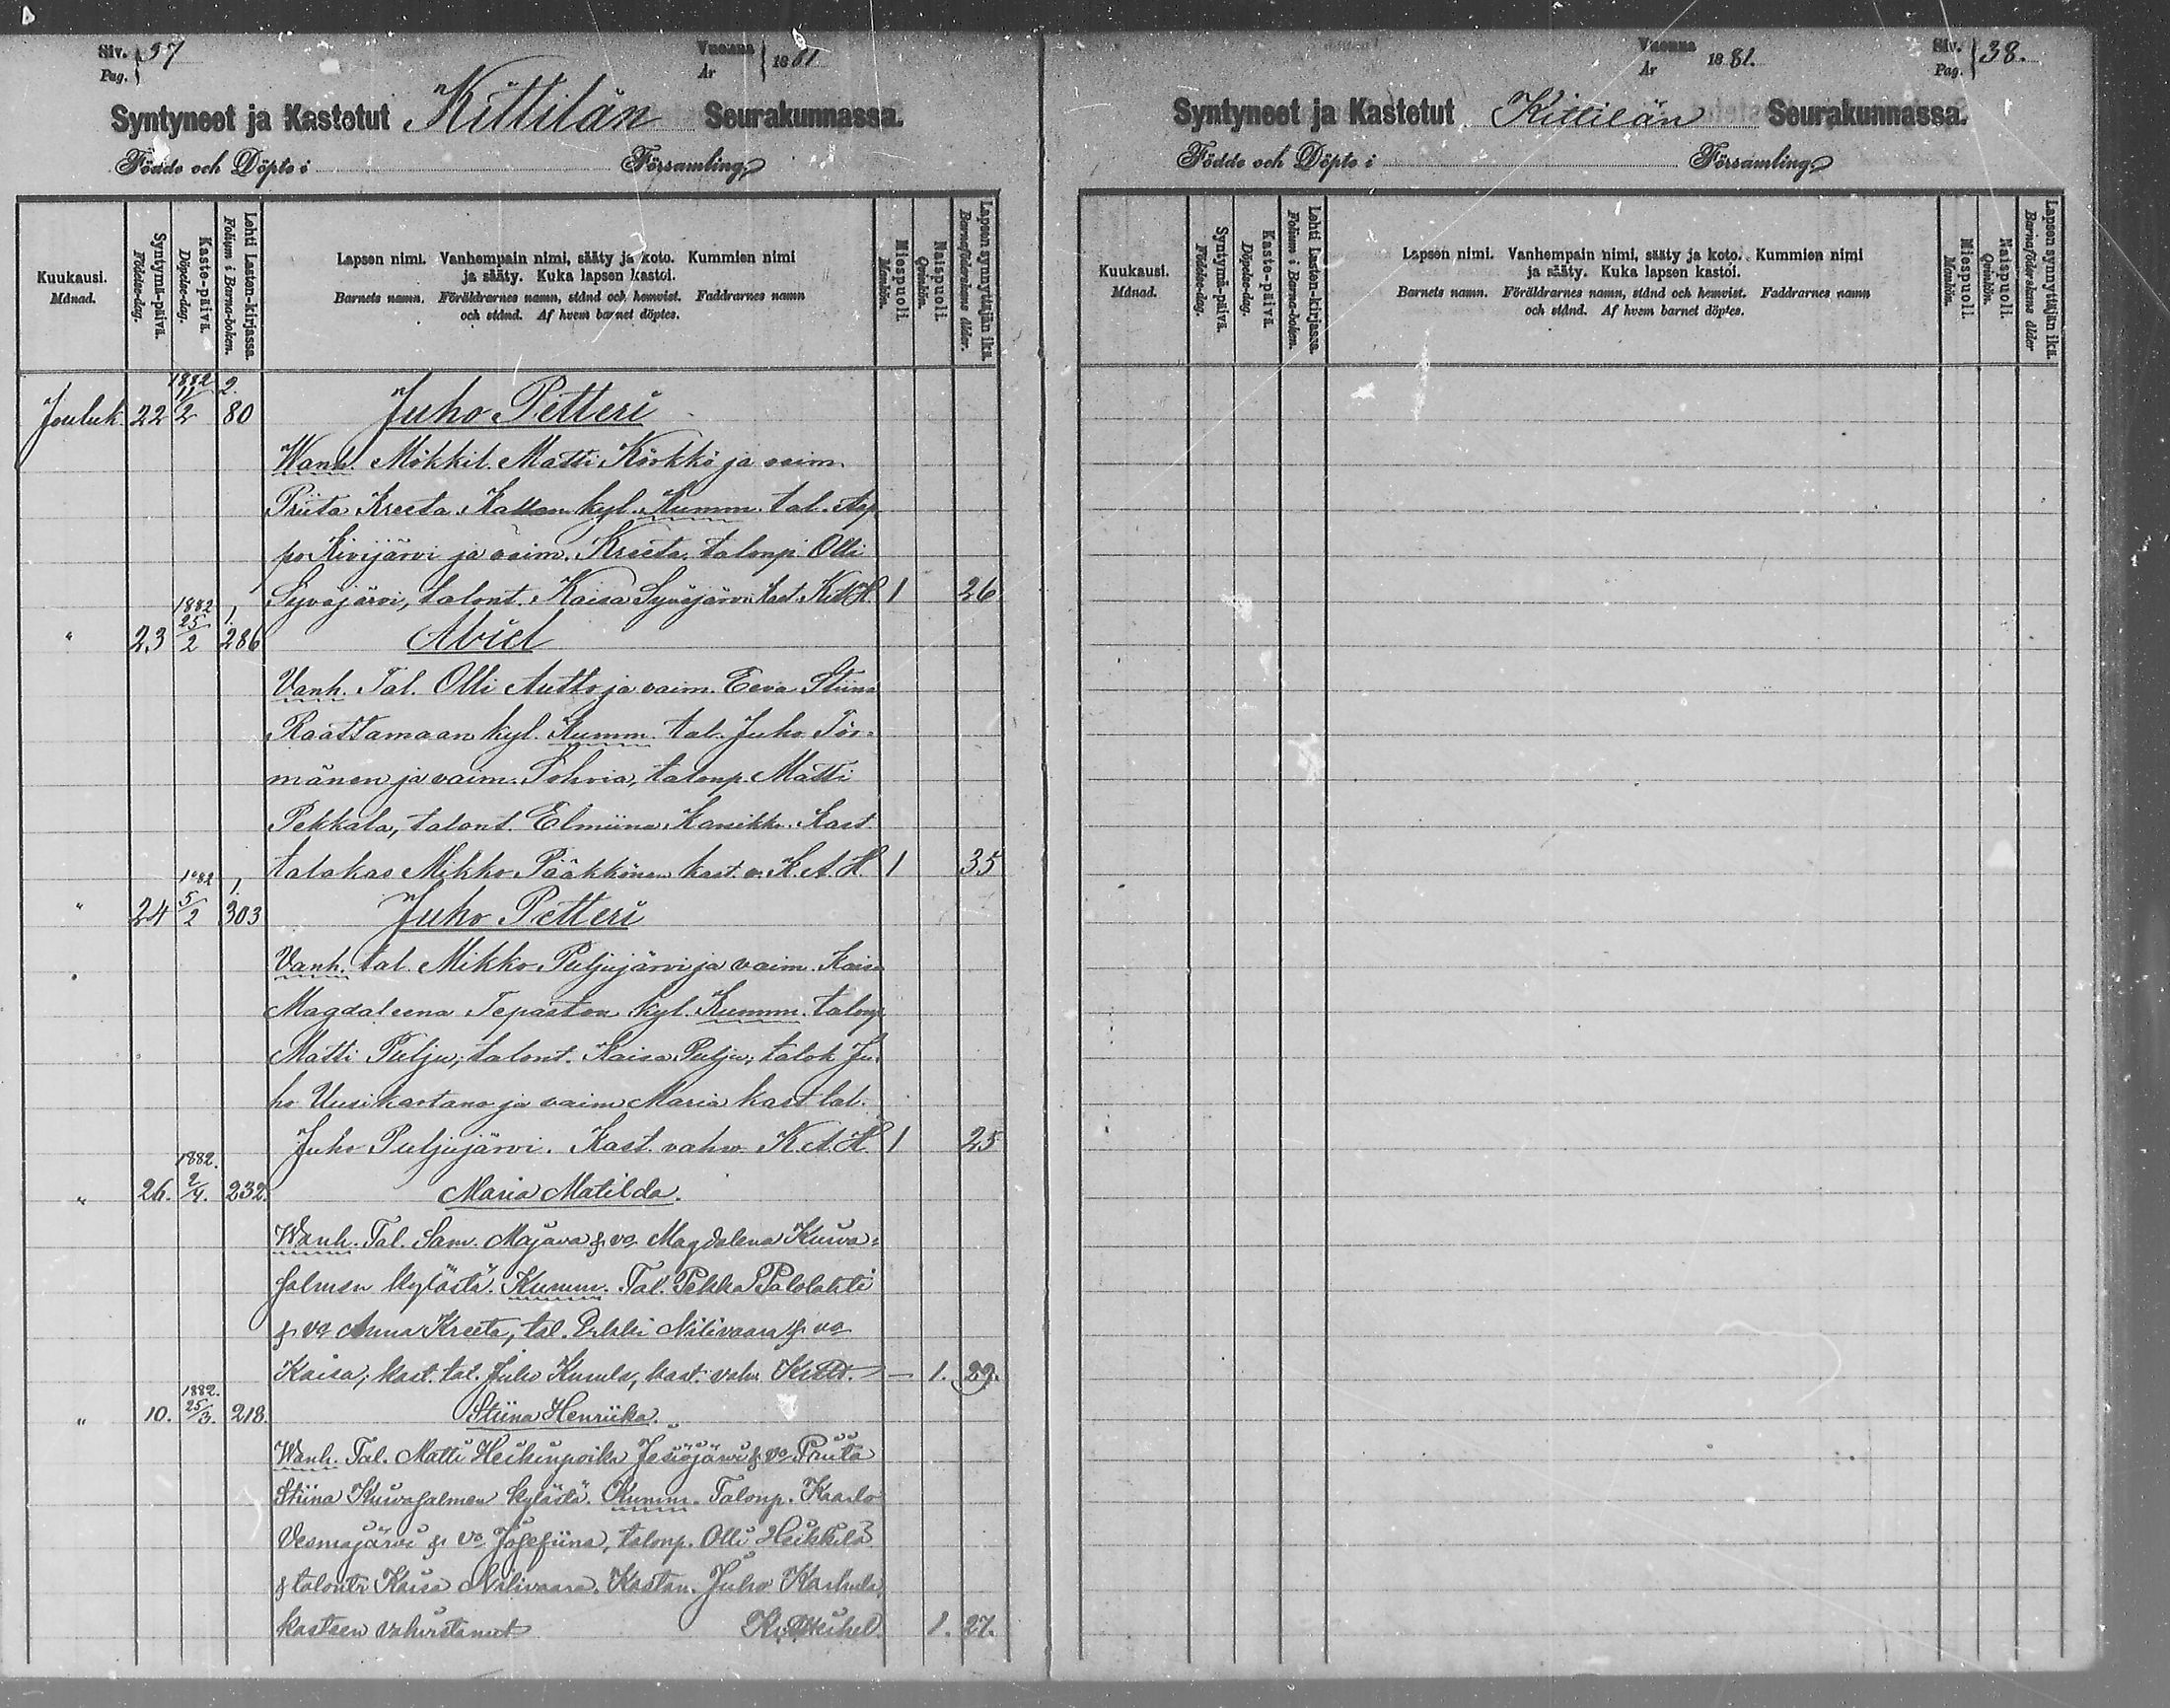 Siv. Pag. 37
Vuonna År 1881
Syntyneet ja Kastetut Kittilän Seurakunnassa.
Födde och Döpte i Församling
Kuukausi. Månad.
Syntymä-päivä. Födelse-dag.
Kaste-päivä. Döpelse-dag.
Lehti Lasten-kirjassa. Folium i Barna-boken.
Lapsen nimi. Vanhempain nimi, sääty ja koto. Kummien nimi
ja sääty. Kuka lapsen kastoi.
Barnets namn. Föräldrarnes namn, stånd och hemvist. Faddrarnes namn
och stånd. Af hvem barnet döptes.
Miespuoli. Mankön.
Naispuoli. Qvinkön.
Lapsen synnyttäjän ikä. Barnaföderskans ålder.
Jouluk. 22 1882 11/2 2. 80 Juho Petteri
Wanh. Mökkil. Matti Körkkö ja vaim.
Priita Kreeta Kallon kyl. Kumm. tal. Aap
po Kivijärvi ja vaim. Kreeta, talonp. Olli
Syväjärvi, talont. Kaisa Syväjärvi kast. 1 26
" 23 1882 25/2 1. 286 Abiel
Vanh. Tal. Olli Autto ja vaim. Eeva Stiina
Raattamaan kyl. Kumm. tal. Juho Tör-
mänen ja vaim. Sohvia, talonp. Matti
Pekkala, talont. Elmiina Kansikko. Kast.
talokas Mikko Pääkkönen kast. v. K. A. H. 1 35
" 24 1882 5/2 1. 303 Juho Petteri
Vanh. tal. Mikko Puljujärvi ja vaim. Kaisa
Magdaleena Tepaston kyl. Kumm. talonp.
Matti Pulju, talont. Kaisa Pulju, talok Ju-
ho Uusikartano ja vaim Maria kast tal.
Juho Puljujärvi. Kast. vahv. K. A. H. 1 25
" 26. 1882. 2/4. 232. Maria Matilda.
Wanh. Tal. Sam. Majava & vo Magdalena Kuiva-
salmen kylästä. Kumm. Tal. Pekka Palolahti
& vo Anna Kreeta, tal. Erkki Nilivaara & vo
Kaisa, kast. tal. Juho Kurula, kast. vahv. — 1. 29.
" 10. 1882. 25/3. 218. Stiina Henriika.
Wanh. Tal. Matti Heikinpoika Jesiöjärvi & vo Priita
Stiina Kuivasalmen kylästä. Kumm. Talonp. Kaarlo
Vesmajärvi & vo Josefiina, talonp. Olli Heikkilä
& talontr Kaisa Nilivaara. Kastan. Juho Karhula,
kasteen vahvistanut 1. 27.
Vuonna År 1881.
Siv. Pag. 38.
Syntyneet ja Kastetut Kittilän Seurakunnassa.
Födde och Döpte i Församling
Kuukausi. Månad.
Syntymä-päivä. Födelse-dag.
Kaste-päivä. Döpelse-dag.
Lehti Lasten-kirjassa. Folium i Barna-boken.
Lapsen nimi. Vanhempain nimi, sääty ja koto. Kummien nimi
ja sääty. Kuka lapsen kastoi.
Barnets namn. Föräldrarnes namn, stånd och hemvist. Faddrarnes namn
och stånd. Af hvem barnet döptes.
Miespuoli. Mankön.
Naispuoli. Qvinkön.
Lapsen synnyttäjän ikä. Barnaföderskans ålder